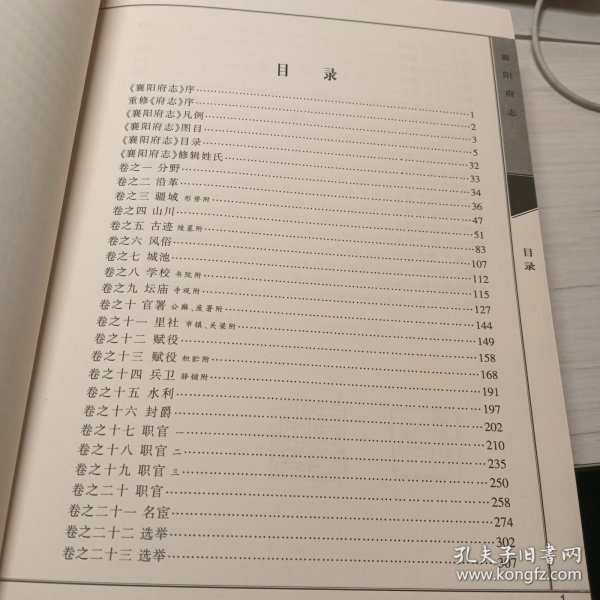 目 录
《襄阳府志》序……1
重修《府志》序……2
《襄阳府志》凡例……3
《襄阳府志》图目……5
《襄阳府志》目录……32
《襄阳府志》修辑姓氏……33
卷之一 分野……34
卷之二 沿革……36
卷之三 疆域 形势附……47
卷之四 山川……51
卷之五 古迹 陵墓附……83
卷之六 风俗……107
卷之七 城池……112
卷之八 学校 书院附……115
卷之九 坛庙 寺观附……127
卷之十 官署 公廨、废署附……144
卷之十一 里社 市镇、关梁附……149
卷之十二 赋役……158
卷之十三 赋役 积贮附……168
卷之十四 兵卫 驿铺附……191
卷之十五 水利……197
卷之十六 封爵……202
卷之十七 职官 一……210
卷之十八 职官 二……235
卷之十九 职官 三……250
卷之二十 职官……258
卷之二十一 名宦……274
卷之二十二 选举……302
卷之二十三 选举……307
襄阳府志
目录
1
孔夫子旧书网
www.kongfz.com